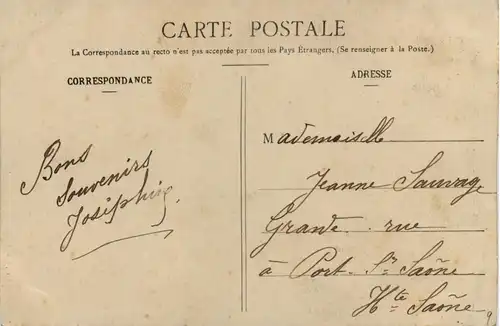 CARTE POSTALE
La Correspondance au recto n'est pas acceptée par tous les Pays Étrangers. (Se renseigner à la Poste.)
CORRESPONDANCE
Bons
Souvenirs
Joséphine
ADRESSE
Mademoiselle
Jeanne Sauvage
Grande rue
à Port-Sr Saône
Hte Saône